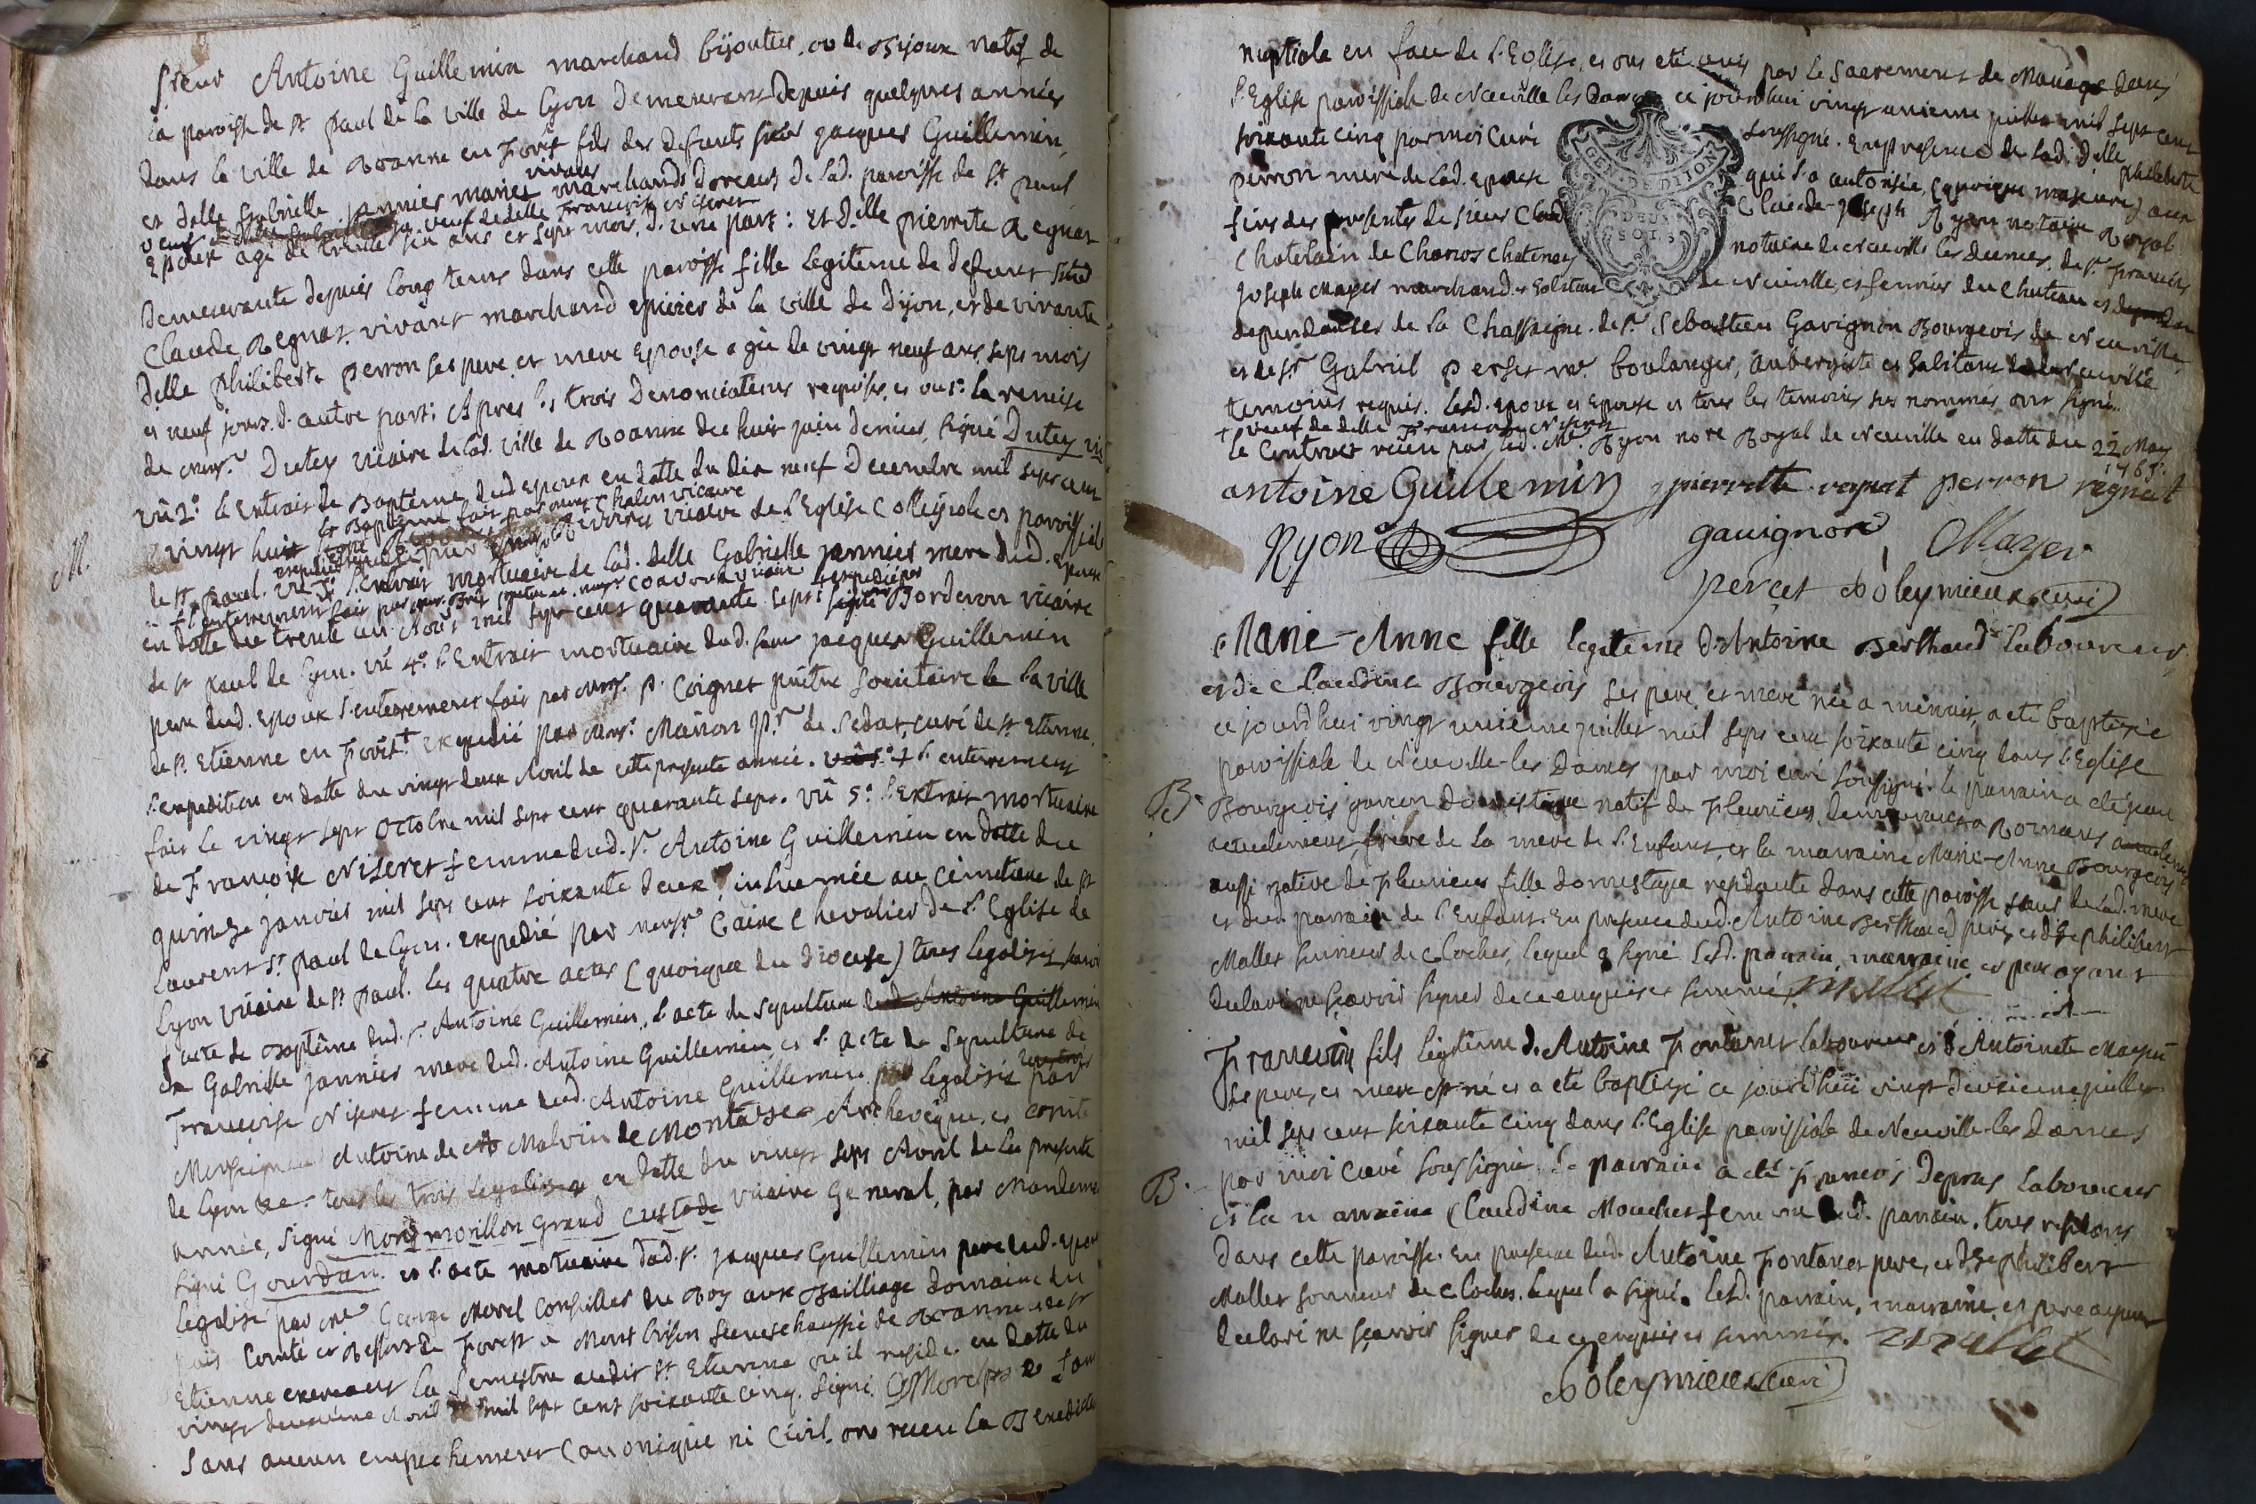 Sieur Antoine Guillemin marchand bijoutier ou de Bijoux natif de
la paroisse de st paul de la ville de Lyon demeurant depuis quelques années
dans la ville de Roanne en Forêt fils des defunts sieur jacques Guillemin,
et delle Gabrielle jannier mariés vivants marchands de lad. paroisse de St paul
veuf de delle Françoise Niseret
Epoux agé de trente six ans et sept mois, d'une part : Et Delle pierrette Regnat
demeurante depuis long tems dans cette paroisse fille legitime de defunt Sieur
Claude Regnat, vivant marchand epicier de la ville de Dijon, et de vivante
delle philiberte perron ses pere et mere Epouse agée de vingt neuf ans sept mois
et neuf jours d'autre part : Apres les trois Denonciations requises, et vu 1° la remise
de Monsr Dutey vicaire de lad. ville de Roanne du huit juin dernier, signé Dutey vic
vû 2° l'Extrait de Baptême dud epoux en datte du dix neuf Decembre mil sept cent
vingt huit
le Baptême fait par monsr Chalon vicaire
vicaire de l'Eglise Collegiale et paroissiale
M.
de st paul. vû 3° l'Extrait mortuaire de lad. delle Gabrielle jannier mere dud. Epoux
en datte du trente un Août mil sept cent quarante sept signé Borderon vicaire
de st paul de Lyon. vû 4° l'Extrait mortuaire dud. sieur jacques Guillemin
pere dud. epoux l'enterrement fait par Monsr. p. Coignet prêtre societaire de la ville
de st. Etienne en Forêt expedié par Monsr. Manon de Sedat, curé de st Etienne.
l'expedition en datte du vingt deux Avril de cette presente année. l'enterrement
fait le vingt sept Octobre mil sept cent quarante sept. vû 5° l'Extrait mortuaire
de Françoise Niseret femme dud. sr. Antoine Guillemin en datte du
quinze janvier mil sept cent soixante deux inhumée au cimetiere de st
Laurent st. paul de Lyon. expedié par Monsr Caire Chevalier de l'Eglise de
Lyon vicaire de st paul. les quatre actes (quoique du diocese) tous legalisés, savoir
l'acte de Baptême dud. sr. Antoine Guillemin, l'acte de sepulture dud Antoine Guillemin
de Gabrielle jannier mere dud. Antoine Guillemin, et l'acte de Sepulture de
Françoise Niseret femme dud. Antoine Guillemin legalisés par
Monseigneur Antoine de Malvin de Montazet Archevêque, et comte
de Lyon &c. tous les trois legalisés en datte du vingt sept Avril de la presente
année, signé Montmorillon Grand Custode vicaire General, par Mandement
signé Gourdan. et l'acte mortuaire dud. sr. jacques Guillemin pere dud. epoux
legalisé par Mr George Morel Conseiller du Roy aux Bailliage Domaine du
païs Comté et Ressort de Forest a Mont brison Senechaussée de Roanne et de st
Etienne exerceant la Semestre audit st Etienne où il reside en datte du
vingt deuxieme Avril mil sept cent soixante cinq. signé Morel
sans aucun empechement Canonique ni Civil. ont receu la Benediction
nuptiale en face de l'Eglise, et ont eté unis par le Sacrement de Mariage dans
l'Eglise paroissiale de Neuville les Dames ce jourdhui vingt unieme juillet mil sept cent
soixante cinq par moi Curé soussigné. En presence de lad. delle philiberte
perron mere de lad. epouse qui l'a autorisée, (quoique majeure) aux
fins des presentes de sieur Claude-Joseph Ryon notaire Royal
Chatelain de Chanos Chatenay notaire de Neuville les Dames, de sr. François
Joseph Mayer marchand et habitant de Neuville, et fermier du Chateau et
dependances de la Chassaigne. de sr. Sebastien Gavignon Bourgeois de Neuville
et de sr. Gabriel perset boulanger, aubergiste et habitant de Neuville
temoins requis. lesd. epoux et epouse et tous les temoins sus nommés ont signé.
+ veuf de delle Françoise Niseret
le Contract receu par led. Mr. Ryon nore Royal de Neuville en datte du 22 May
1765.
antoine Guillemin pierrette regnat perron regnat
Ryon gavignon Mayer
perçet Poleymieux curé
Marie-Anne fille legitime d'Antoine Berthaud Laboureur,
et de Claudine Bourgeois ses pere et mere née a minuit, a eté baptisée
ce jourdhui vingt unieme juillet mil sept cent soixante cinq dans l'Eglise
paroissiale de Neuville-les Dames par moi curé soussigné. le parrain a eté jean
B.
Bourgeois garçon domestique natif de Fleurieux, demeurant a Romans
actuelement, frere de la mere de l'Enfant, et la marraine Marie-Anne Bourgeois
aussi native de Fleurieux fille domestique residante dans cette paroisse sœur de lad. mere
et dud. parrain de l'Enfant. En presence dud. Antoine Berthaud pere, et de philibert
Mallet sonneur de Cloches, lequel a signé lesd. parrain, marraine et pere ayant
declaré ne sçavoir signer de ce enquis et sommés. Mallet
François fils légitime d'Antoine Fontanet laboureur et d'Antoinete
ses pere, et mere est né et a eté baptisé ce jourd'hui vingt deuxieme juillet
mil sept cent soixante cinq dans l'Eglise paroissiale de Neuville-les Dames
par moi Curé soussigné. le parrain a eté François Depras Laboureur
B.
et la marraine Claudine Mouchet femme dud. parrain. tous residans
dans cette paroisse. En presence dud. Antoine Fontanet pere, et de philibert
Mallet sonneur de Cloches. lequel a signé. lesd. parrain, marraine, et pere ayant
declaré ne sçavoir signer de ce enquis et sommés. Mallet
Poleymieux curé
GEN. DE DIJON
DEUX
SOLS